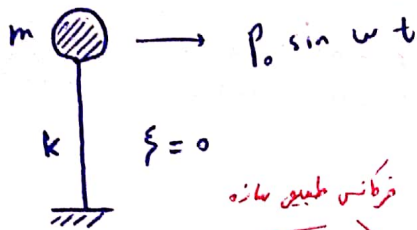 m
P₀ sin ω t
k
ξ = 0
فرکانس طبیعی سازه